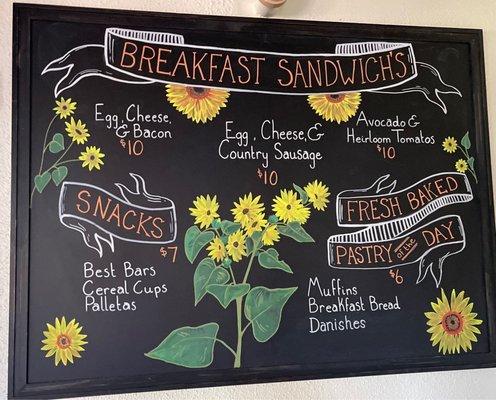 BREAKFAST SANDWICH'S
Egg, Cheese,
& Bacon
$10
Egg, Cheese, &
Country Sausage
$10
Avocado &
Heirloom Tomatos
$10
SNACKS
$7
Best Bars
Cereal Cups
Palletas
FRESH BAKED
PASTRY of the DAY
$6
Muffins
Breakfast Bread
Danishes